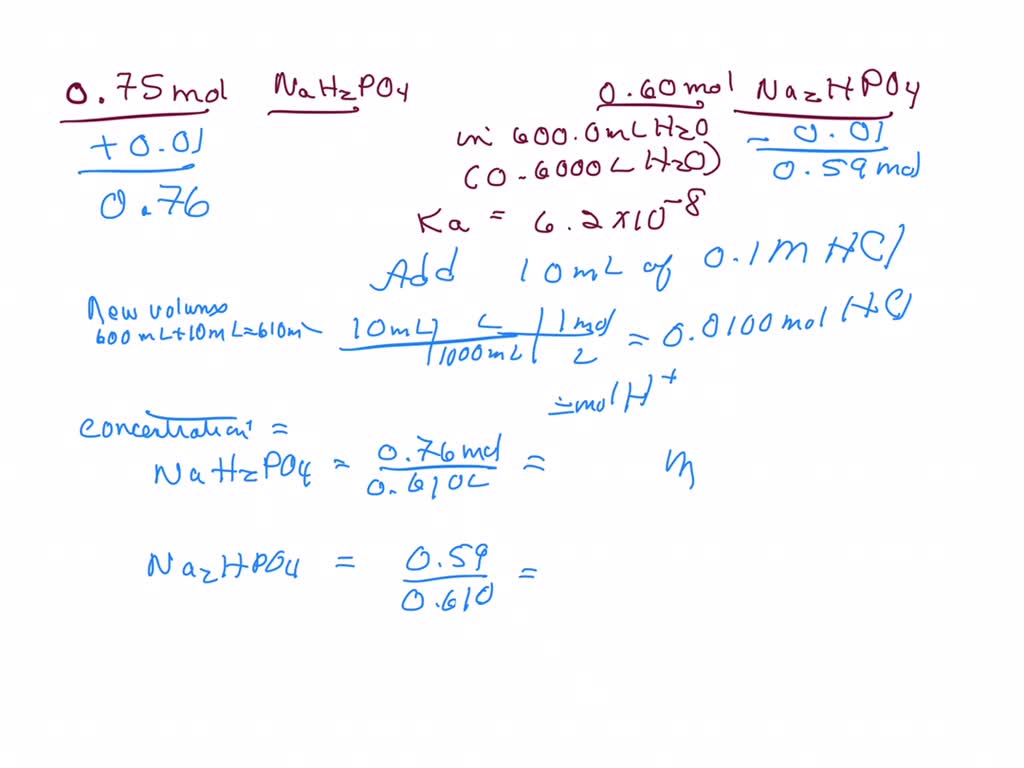 0.75 mol NaH2PO4 0.60 mol Na2HPO4
+ 0.01 in 600.0 mL H2O - 0.01
0.76 (0.6000 L H2O) 0.59 mol
Ka = 6.2 x 10^-8
Add 10 mL of 0.1 M HCl
New volume
600 mL + 10 mL = 610 mL
10 mL | L | 1 mol = 0.0100 mol HCl
| 1000 mL | L
= mol H+
Concentration =
NaH2PO4 = 0.76 mol / 0.610 L = M
Na2HPO4 = 0.59 / 0.610 =